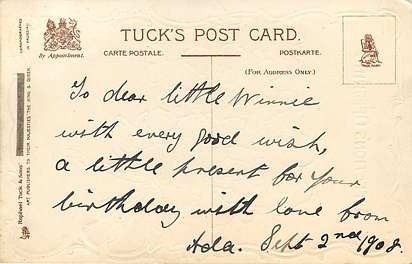 TUCK'S POST CARD.
By Appointment.
CARTE POSTALE.
POSTKARTE.
(FOR ADDRESS ONLY.)
TRADE MARK
To dear little Winnie
with every good wish,
a little present for your
birthday with love from
Ada. Sept 2nd 1908.
Raphael Tuck & Sons'
ART PUBLISHERS TO THEIR MAJESTIES THE KING & QUEEN.